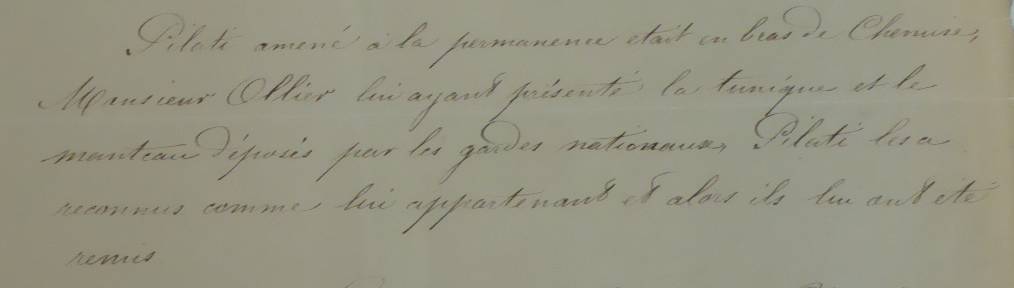 Pilati amené à la permanence etait en bras de Chemise,
Monsieur Ollier lui ayant présenté la tunique et le
manteau déposés par les gardes nationaux, Pilati les a
reconnus comme lui appartenant et alors ils lui ont été
remis